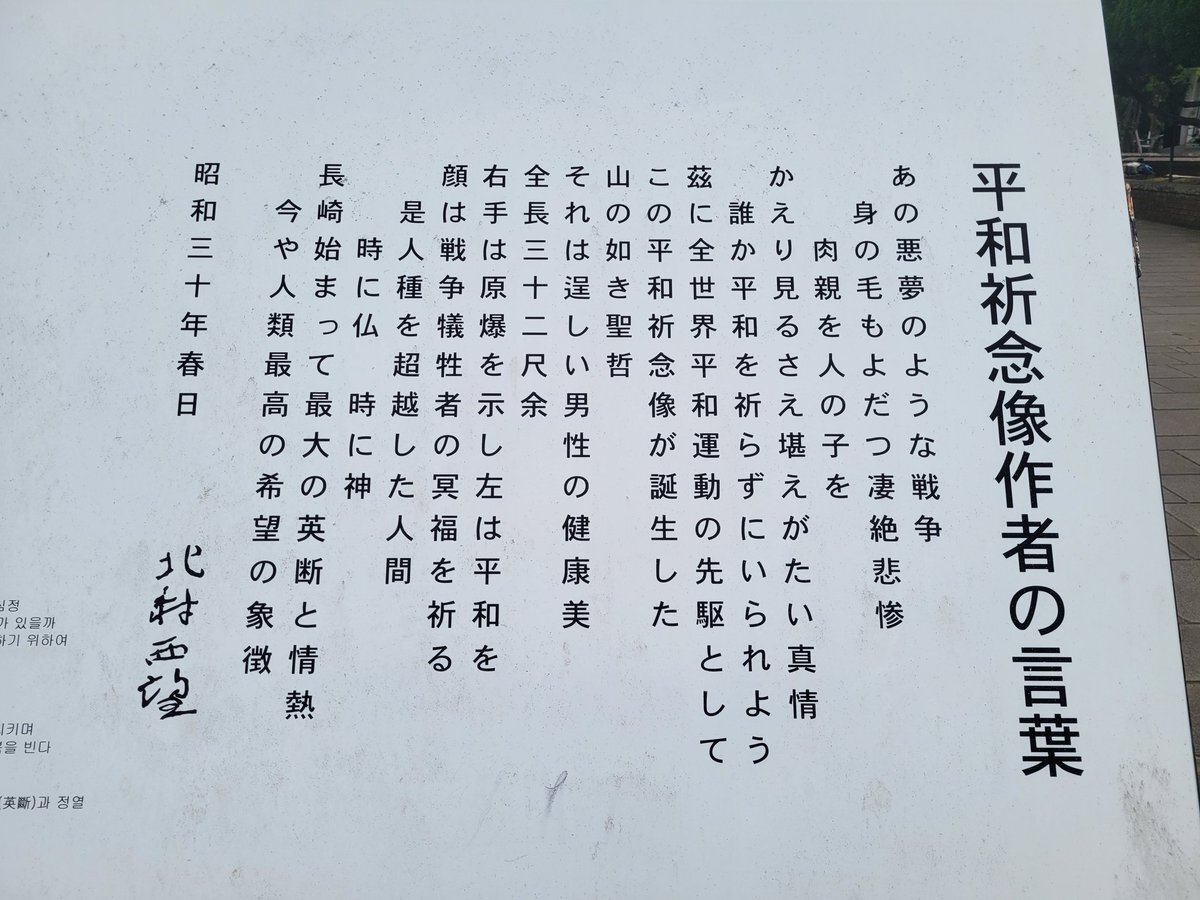 平和祈念像作者の言葉
あの悪夢のような戦争
身の毛もよだつ凄絶悲惨
肉親を人の子を
かえり見るさえ堪えがたい真情
誰か平和を祈らずにいられよう
茲に全世界平和運動の先駆として
この平和祈念像が誕生した
山の如き聖哲
それは逞しい男性の健康美
全長三十二尺余
右手は原爆を示し左は平和を
顔は戦争犠牲者の冥福を祈る
是人種を超越した人間
時に仏 時に神
長崎始まって最大の英断と情熱
今や人類最高の希望の象徴
昭和三十年春日
北村西望
심정
가 있을까
하기 위하여
리키며
복을 빈다
(英斷)과 정열